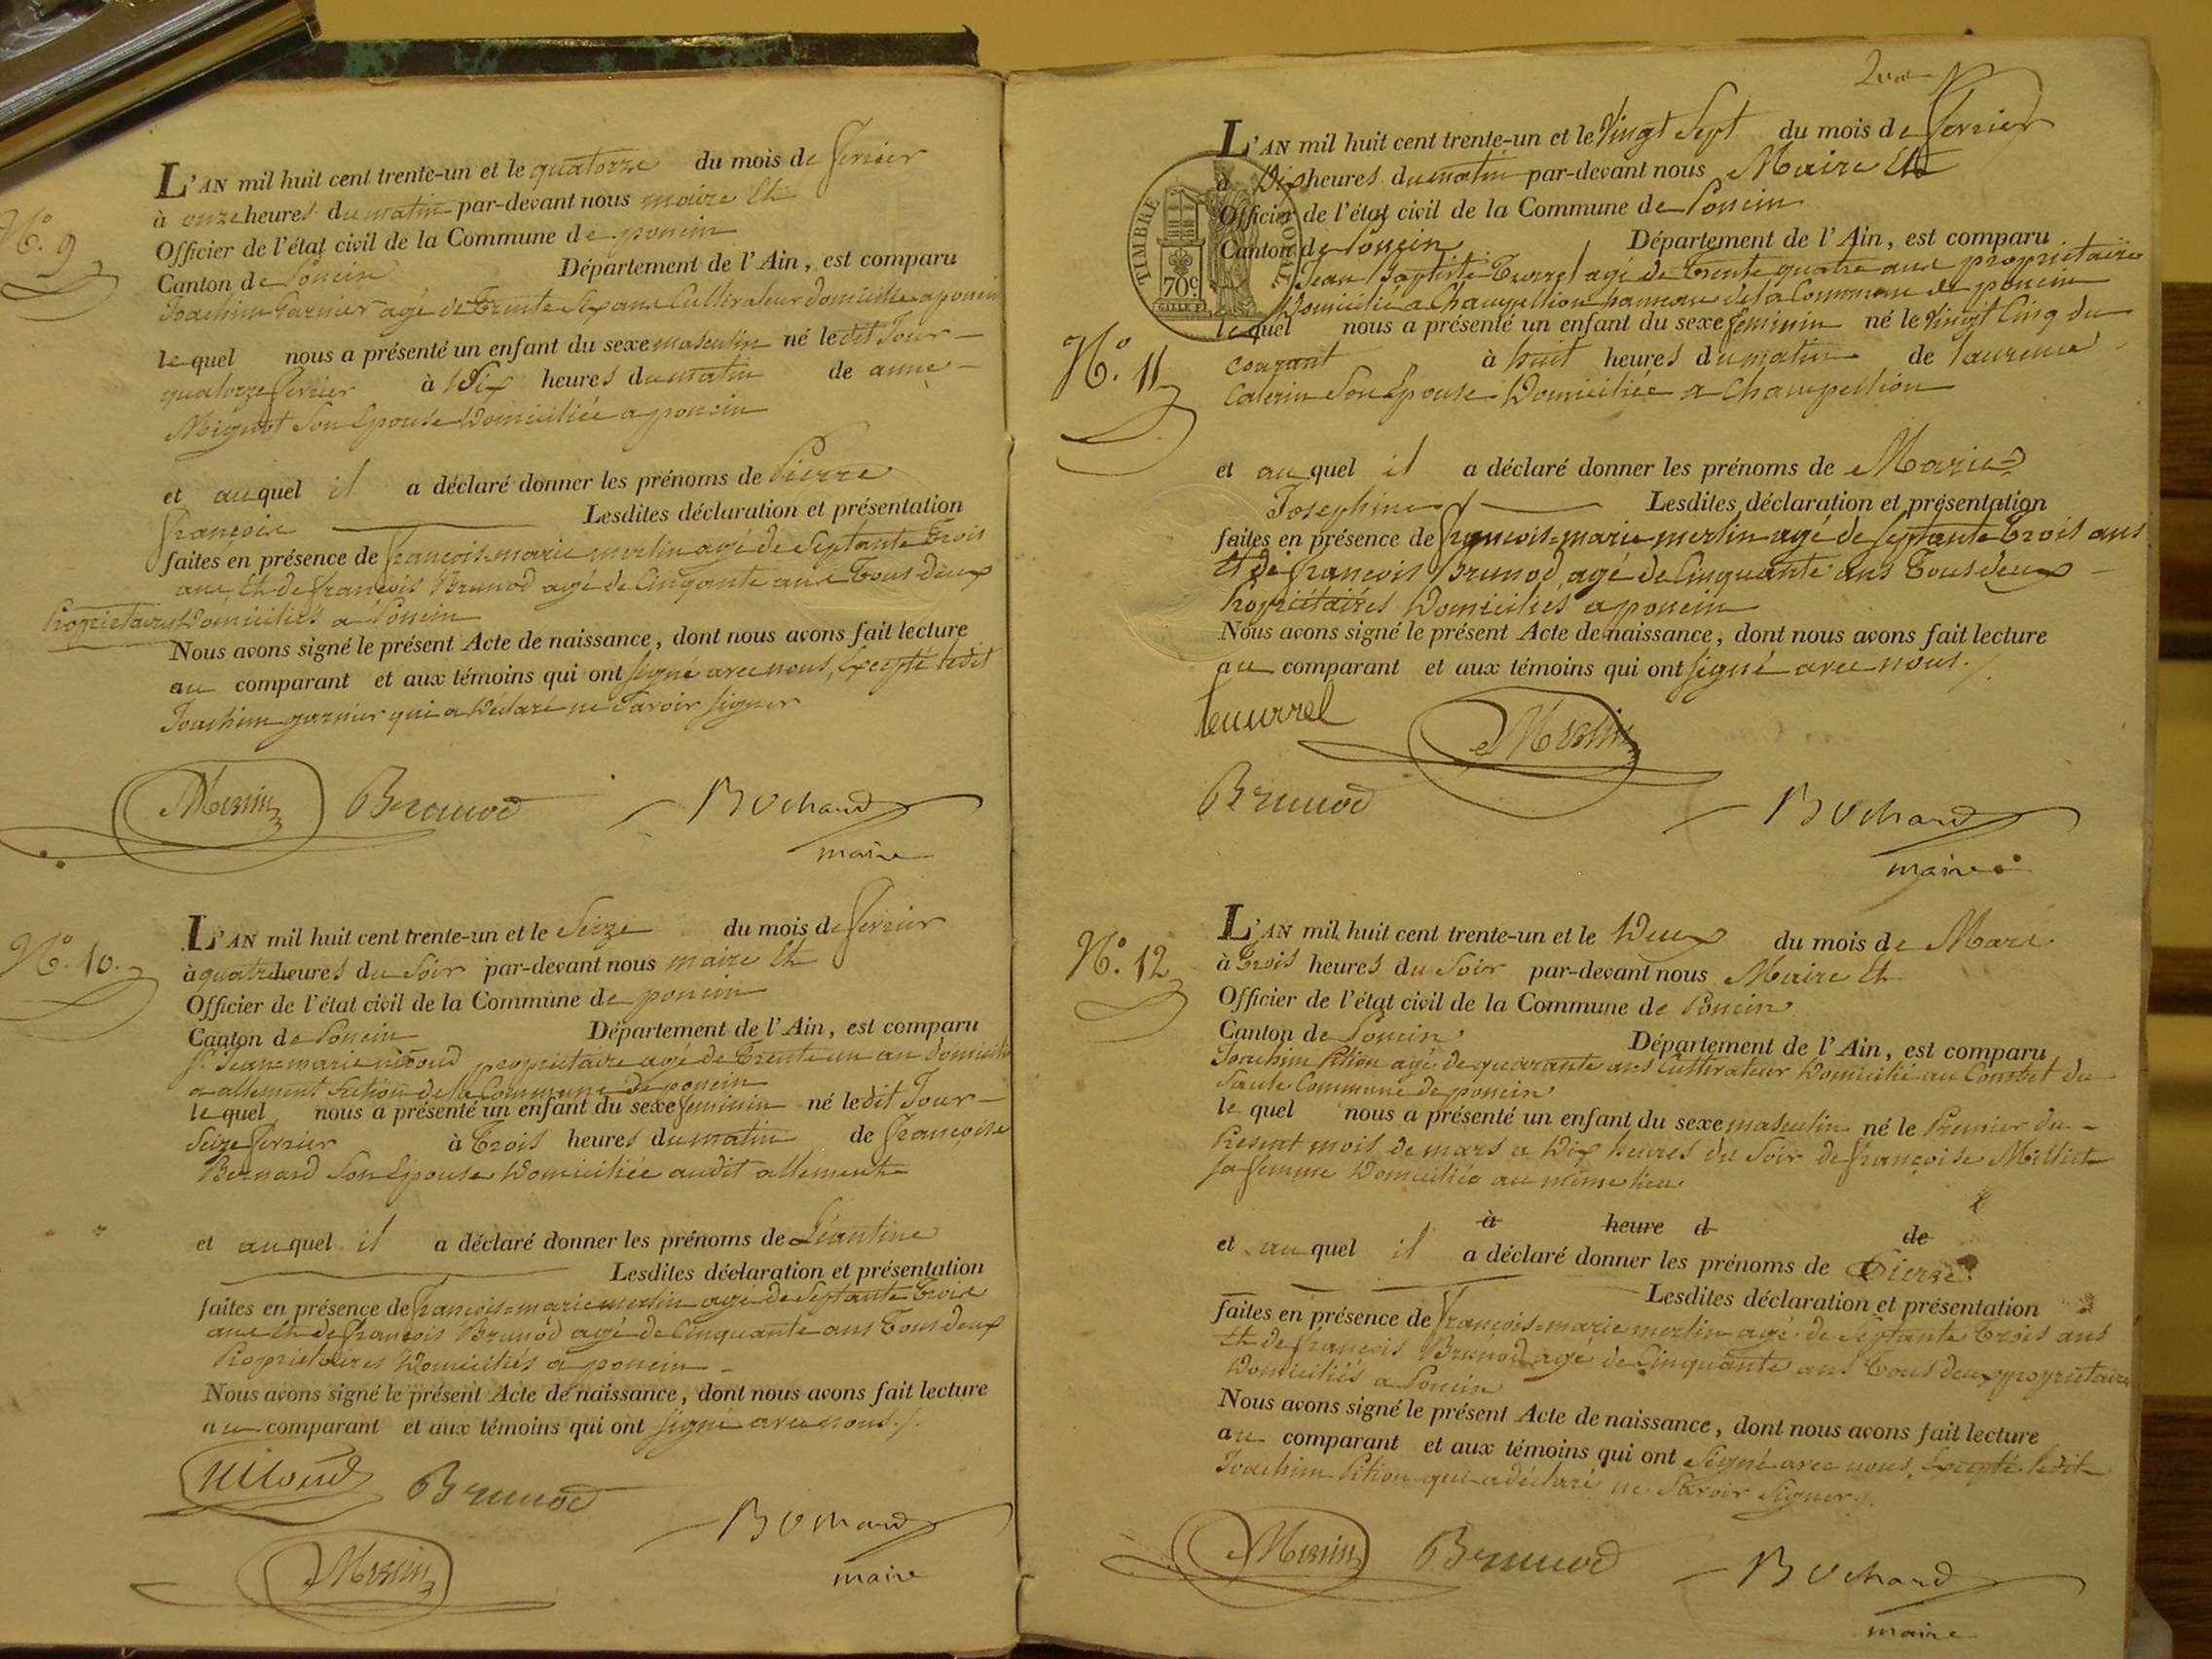 N.° 9
L'AN mil huit cent trente-un et le quatorze du mois de fevrier
à onze heures du matin par-devant nous maire Et
Officier de l'état civil de la Commune de poncin
Canton de Poncin Département de l'Ain, est comparu
Joachim Garnier agé de Trente Six ans Cultivateur domicilié a poncin
lequel nous a présenté un enfant du sexe masculin né ledit Jour
quatorze fevrier à Six heures du matin de anne
Mignot Son Epouse Domiciliée a poncin
et auquel il a déclaré donner les prénoms de Pierre
françois Lesdites déclaration et présentation
faites en présence de françois-marie merlin agé de Septante Trois
ans, Et de francois Brunod agé de Cinqante ans Tous deux
Propriétaires Domiciliés a Poncin
Nous avons signé le présent Acte de naissance, dont nous avons fait lecture
au comparant et aux témoins qui ont signé avec nous, Excepté ledit
Joachim garnier qui a Déclaré ne Savoir signer
Merlin Brunod Bochard
maire
N.° 10.
L'AN mil huit cent trente-un et le Seize du mois de fevrier
à quatre heures du Soir par-devant nous maire Et
Officier de l'état civil de la Commune de poncin
Canton de Poncin Département de l'Ain, est comparu
s.r Jean-marie nicoud propriétaire agé de Trente un an domicilié
a allement Section de la Commune de poncin
lequel nous a présenté un enfant du sexe feminin né ledit Jour
Seize fevrier à Trois heures du matin de françoise
Bernard Son Epouse Domiciliée audit allement
et auquel il a déclaré donner les prénoms de Léantine
Lesdites déclaration et présentation
faites en présence de francois-marie merlin agé de Septante Trois
ans Et de francois Brunod agé de Cinquante ans Tous deux
Propriétaires Domiciliés a poncin
Nous avons signé le présent Acte de naissance, dont nous avons fait lecture
au comparant et aux témoins qui ont signé avec nous./.
Nicoud Brunod
Bochard
Merlin maire
L'AN mil huit cent trente-un et le Vingt Sept du mois de fevrier
à Dix heures du matin par-devant nous Maire Et
Officier de l'état civil de la Commune de Poncin
Canton de Poncin Département de l'Ain, est comparu
TIMBRE ROYAL
70c
Jean Baptiste Teurrel agé de Trente quatre ans propriétaire
Domicilié a Champeillion hameau de la Commune de poncin
N.° 11
lequel nous a présenté un enfant du sexe feminin né le Vingt Cinq du
courant à huit heures du matin de laurence
Caterin Son Epouse Domiciliée a Champeillion
et auquel il a déclaré donner les prénoms de Marie
Josephine Lesdites déclaration et présentation
faites en présence de françois-marie merlin agé de Septante Trois ans
Et de francois Brunod, agé de Cinquante ans Tous deux
Propriétaires Domiciliés a poncin
Nous avons signé le présent Acte de naissance, dont nous avons fait lecture
au comparant et aux témoins qui ont signé avec nous./.
teurrel Merlin
Brunod Bochard
maire
N.° 12
L'AN mil huit cent trente-un et le Deux du mois de Mars
à Trois heures du Soir par-devant nous Maire Et
Officier de l'état civil de la Commune de Poncin
Canton de Poncin Département de l'Ain, est comparu
Joachim Pition agé de quarante ans Cultivateur Domicilié au du
Saule Commune de poncin
lequel nous a présenté un enfant du sexe masculin né le Premier du
Present mois de mars a Dix heures du Soir de françoise Milliet
sa femme Domiciliée au même lieu
à heure d de
et auquel il a déclaré donner les prénoms de Pierre
Lesdites déclaration et présentation
faites en présence de francois-marie merlin agé de Septante Trois ans
Et de francois Brunod agé de Cinquante ans Tous deux propriétaires
Domiciliés a Poncin
Nous avons signé le présent Acte de naissance, dont nous avons fait lecture
au comparant et aux témoins qui ont Signé avec nous, Excepté ledit
Joachim Pition qui a déclaré ne Savoir Signer./.
Merlin Brunod Bochard
maire